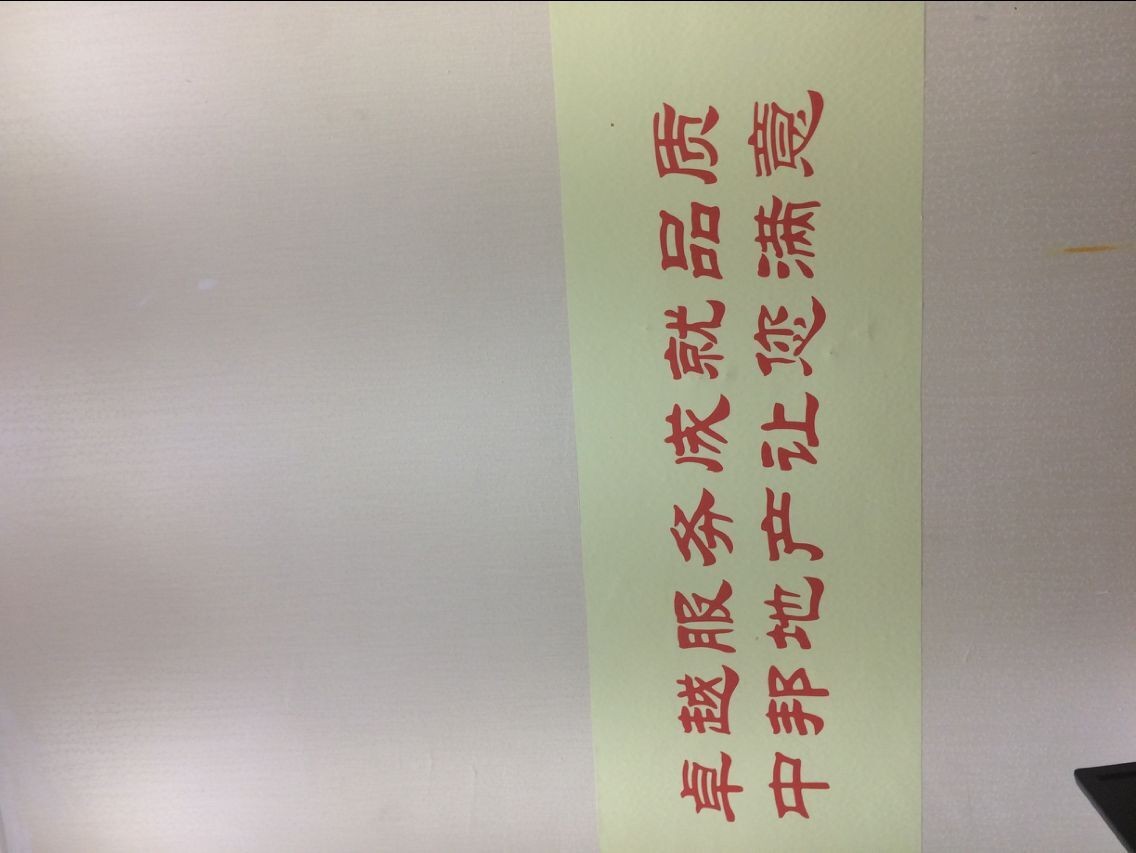 卓越服务成就品质
中邦地产让您满意